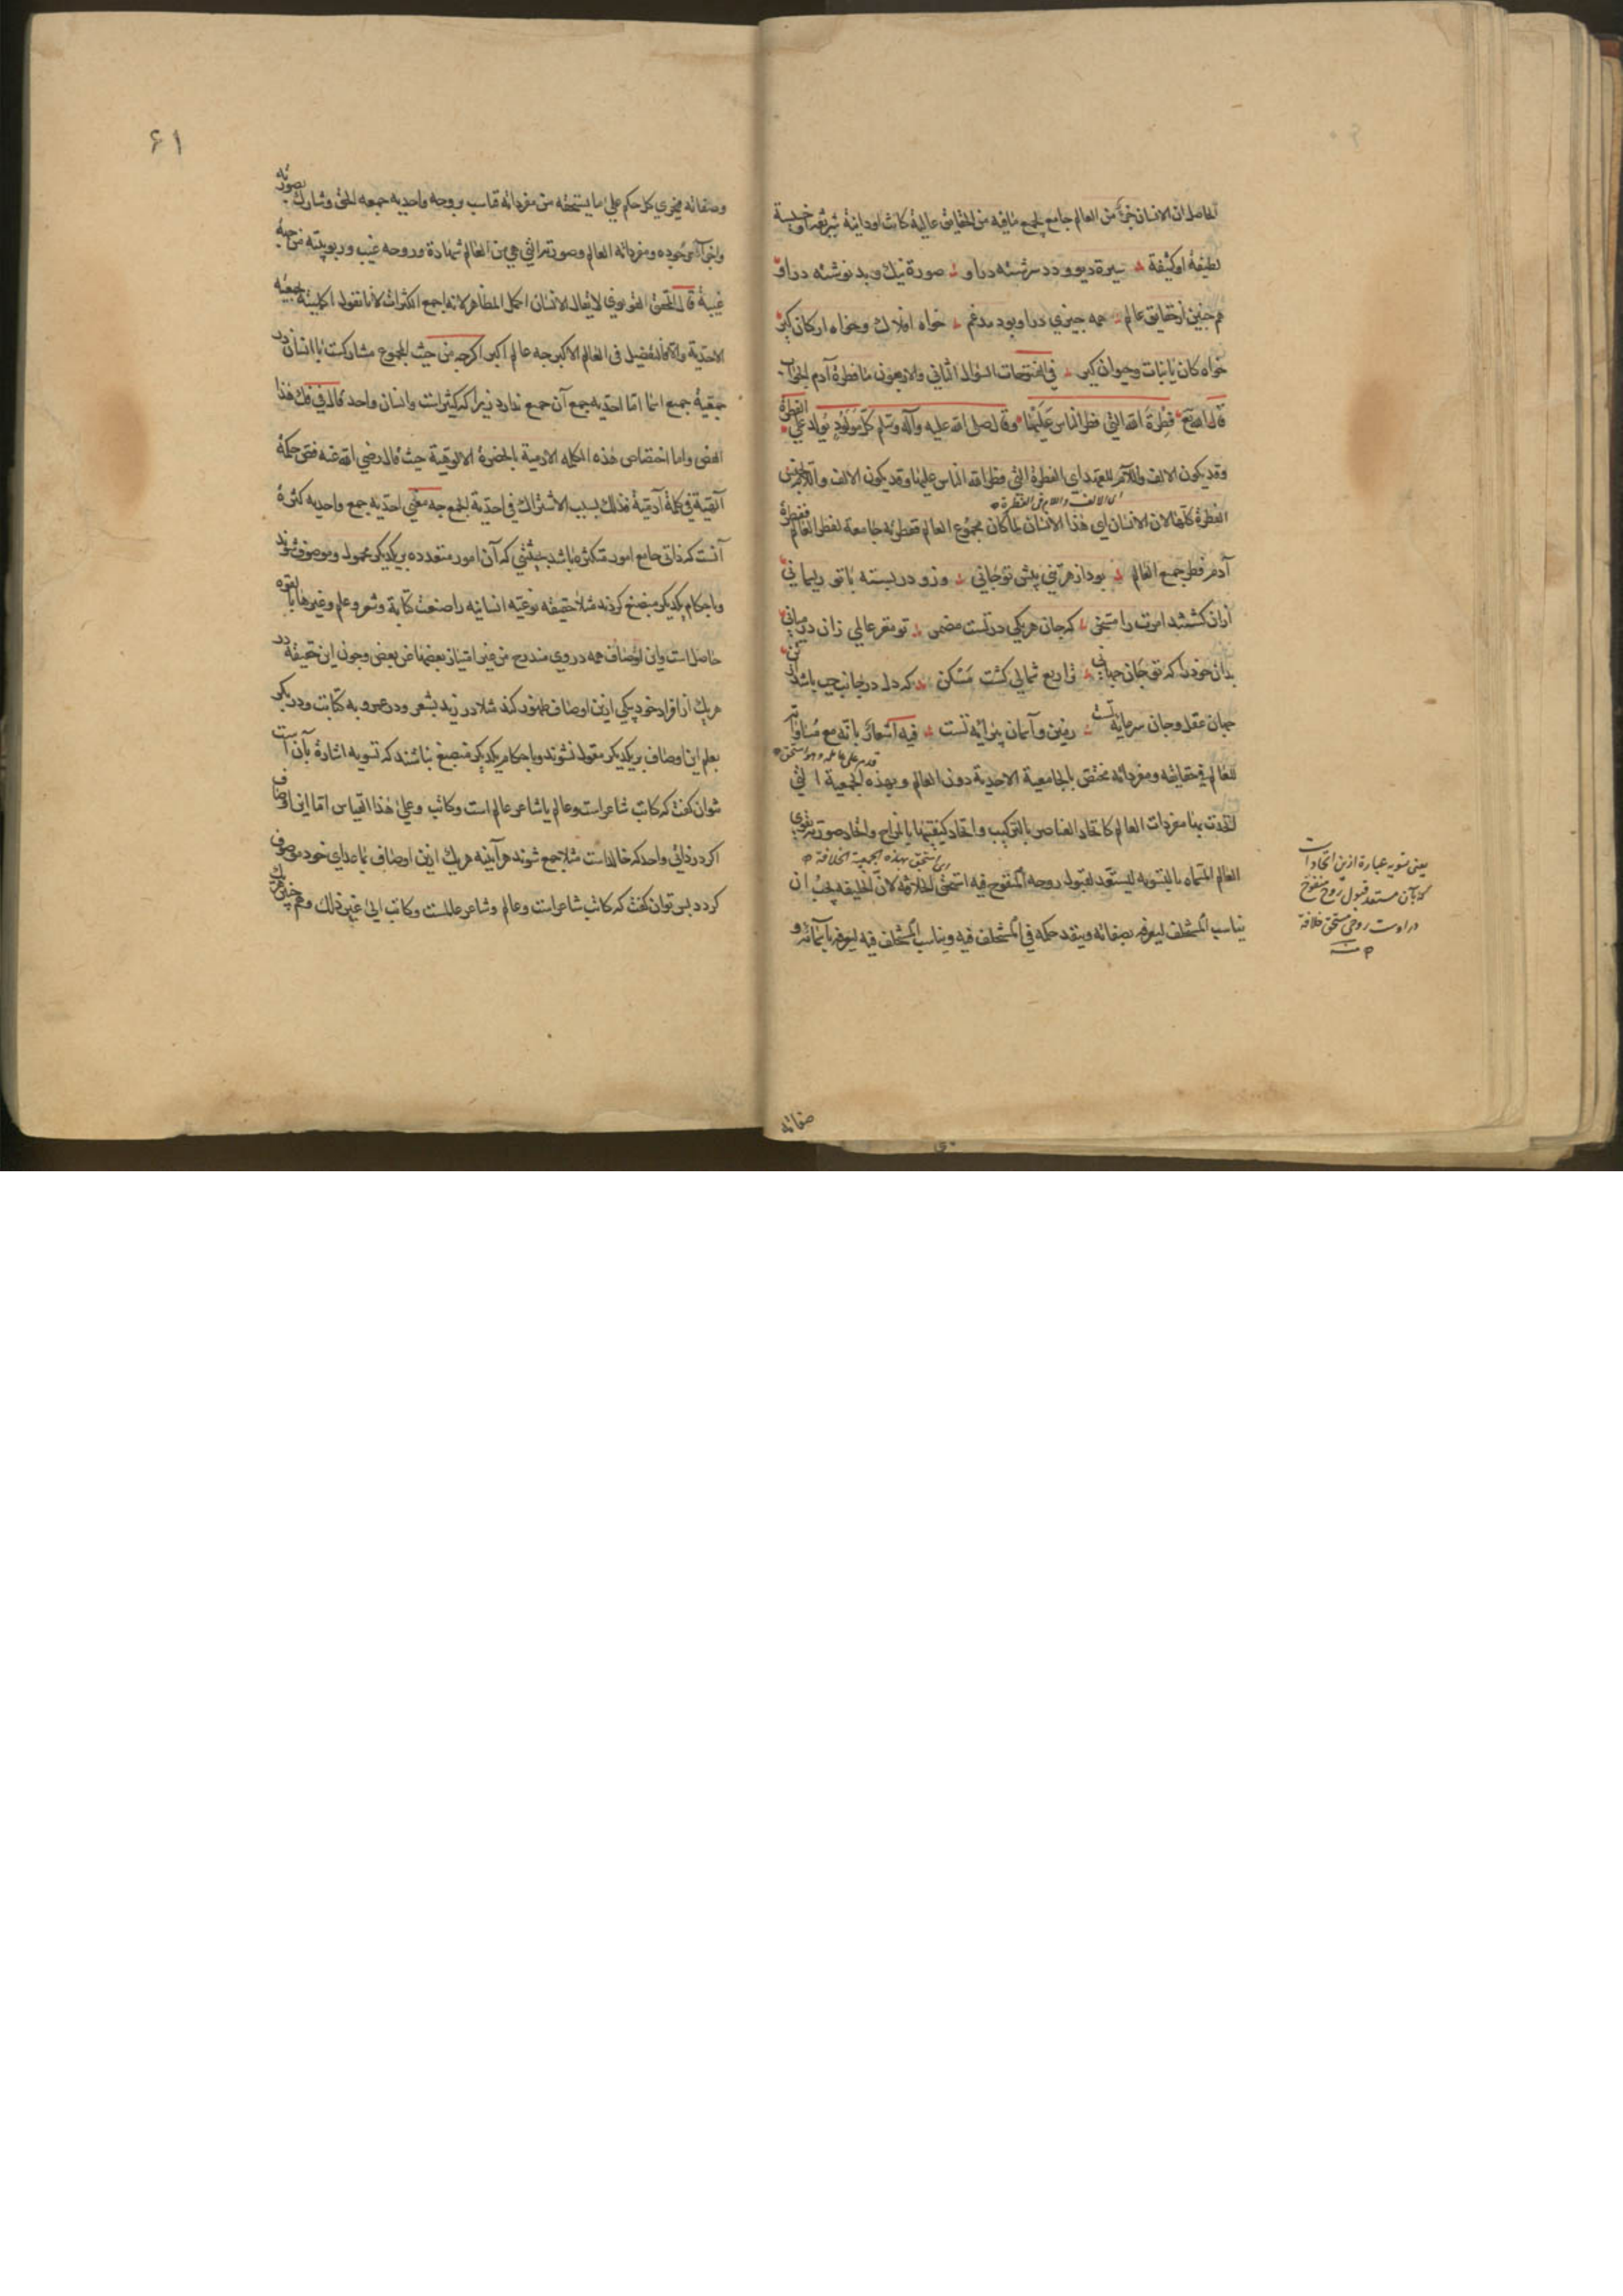 الحاصل ان الانسان جزء من العالم جامع لجميع ما فيه من الحقايق عالية كانت او دانية شريفة او خسيسة
لطيفة او كثيفة سيرة ديو و دد سرشته در او صورة نيك و بد نوشته در او
هم چنين از حقايق عالم همه چيزي در او بود مدغم خواه افلاك و خواه اركان كير
خواه كان يا نبات و حيوان كير في الفتوحات السؤال الثاني والاربعون ما فطرة آدم الجواب
قال الله تع فطرة الله التي فطر الناس عليها وقال صلى الله عليه وآله وسلم كل مولود يولد على الفطرة
وقد يكون الالف واللام للعهد اي الفطرة التي فطر الله الناس عليها وقد يكون الالف واللام لجنس
اي الالف واللام في الفطرة
الفطرة كلها لان الانسان اي هذا الانسان لما كان مجموع العالم ففطرته جامعة لفطر العالم ففطرة
آدم فطر جميع العالم بود از هر تني پيش تو جاني وزو در بسته با تو ريسماني
ازان كشتند امرت را مسخر كه جان هر يكي در تست مضمر تو مغز عالمي زان در مياني
بدان خود را كه تو جان جهاني ترا ربع شمالي كشت مسكن كه دل در جانب چپ باشد از تن
جهان عقل و جان سرمايه تست زمين و آسمان پيرايه تست فيه اشعار بانه مع مساواته
للعالم في حقايقه ومفرداته مختص بالجامعية الاحدية دون العالم وبهذه الجمعية التي
اتحدت بها مفردات العالم كاتحاد العناصر بالتركيب واتحاد كيفيتها بالمزاج واتحاد صورته بقوي
اي استحق بهذه الجمعية الخلافة
العالم المسماه بالتسويه ليستعد لقبول روحه المنفوخ فيه استحق الخلافة لان الخليفه يجب ان
يناسب المستخلف ليعرفه بصفاته وينفذ حكمه في المستخلف فيه ويناسب المستخلف فيه ليعرفه باسمائه و
يعني تسويه عبارة ازين اتحاد است
كه بآن مستعد قبول روح منفوخ
در اوست مستحق خلافة
صفاته
۶۱
وصفاته فيجري كل حكم علي ما يستحقه من مفرداته فناسب بروحه واحدية جمعه الحق وشارك بصورته
واجزاء وجوده ومفرداته العالم وصورته التي هي من العالم شهادة وروحه غيب وربوبيته من جهة
غيبة قال المحقق القونوي لا يقال الانسان اكمل المظاهر لانه اجمع الكثرات لانا نقول اكمليته لجمعيته
الاحدية والا فالتفصيل في العالم الاكبر چه عالم اكبر اكرچه من حيث المجموع مشاركست با انسان در
جمعية جميع اسما اما احديه جمع آن جمع ندارد زيرا كه كثير است وانسان واحد قال في فك هذا
الفص واما اختصاص هذه الكلمه الادمية بالحضرة الالوهية حيث قال رضي الله عنه فص حكمة
آلهية في كلمة آدمية فذلك بسبب الاشتراك في احدية الجمع چه معني احديه جمع واحديه كثرة
آنست كه ذاتي جامع امور متكثره باشد بحيثيتي كه آن امور متعدده بر يكديكر محمول وموصوف شوند
وباحكام يكديكر منصبغ كردند مثلا حقيقه نوعيه انسانيه را صنعت كتابة وشعر وعلم وغيرها بالقوه
حاصل است واين اوصاف همه در وي مندرج من غير امتياز بعضها عن بعض وچون اين حقيقة در
هر يك از افراد خود بيكي ازين اوصاف ظهور كند مثلا در زيد بشعر ودر عمرو به كتابت ودر بكر
بعلم اين اوصاف بر يكديكر مقول نشوند وباحكام يكديكر منصبغ نباشند كه تسويه اشارة بآن است
نتوان كفت كه كاتب شاعر است وعالم يا شاعر عالم است وكاتب وعلي هذا القياس اما اين اوصاف
اكر در ذاتي واحد كه خالد است مثلا جمع شوند هر آينه هر يك ازين اوصاف بما عداي خود موصوف
كردد پس توان كفت كه كاتب شاعر است وعالم وشاعر عالمست وكاتب الي غير ذلك وهم چنين هر يك